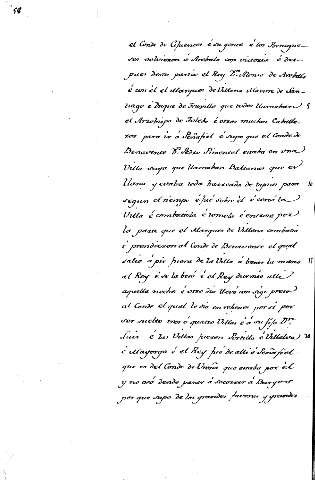 58
el Conde de Cifuentes é su gente é los Portugue-
ses volvieron á Arévalo con victoria é des-
pues desto partió el Rey Dn. Alonso de Arévalo
é con él el Marques de Villena Maestre de San-
tiago é Duque de Truxillo que todos llamaban 5
el Arzobispo de Toledo é otros muchos Caballe-
ros para ir á Peñafiel é supo que el Conde de
Benavente Dn. Rodrigo Pimentel estaba en una
Villa suya que llamaban Baltanas que es
llana y estaba toda barreada de tapias para 10
segun el tiempo é fué sobre él é cercó la
Villa é combatióla é tomola é entraron por
la parte que el Marques de Villena combatia
é prendieron al Conde de Benavente el qual
salió á pie fuera de la Villa á besar la mano 15
al Rey é se la besó é el Rey durmió alli
aquella noche é otro dia llevó consigo preso
al Conde el qual le dió en rehenes por sí por
ser suelto tres ó quatro Villas é á su fijo Dn.
Luis é las Villas fueron Portillo é Villalva 20
é Mayorga é el Rey fué de alli á Peñafiel
que era del Conde de Urueña que estaba por él
y no osó dende pasar á socorrer á Burgos
por que supo de las grandes fuerzas y grandes